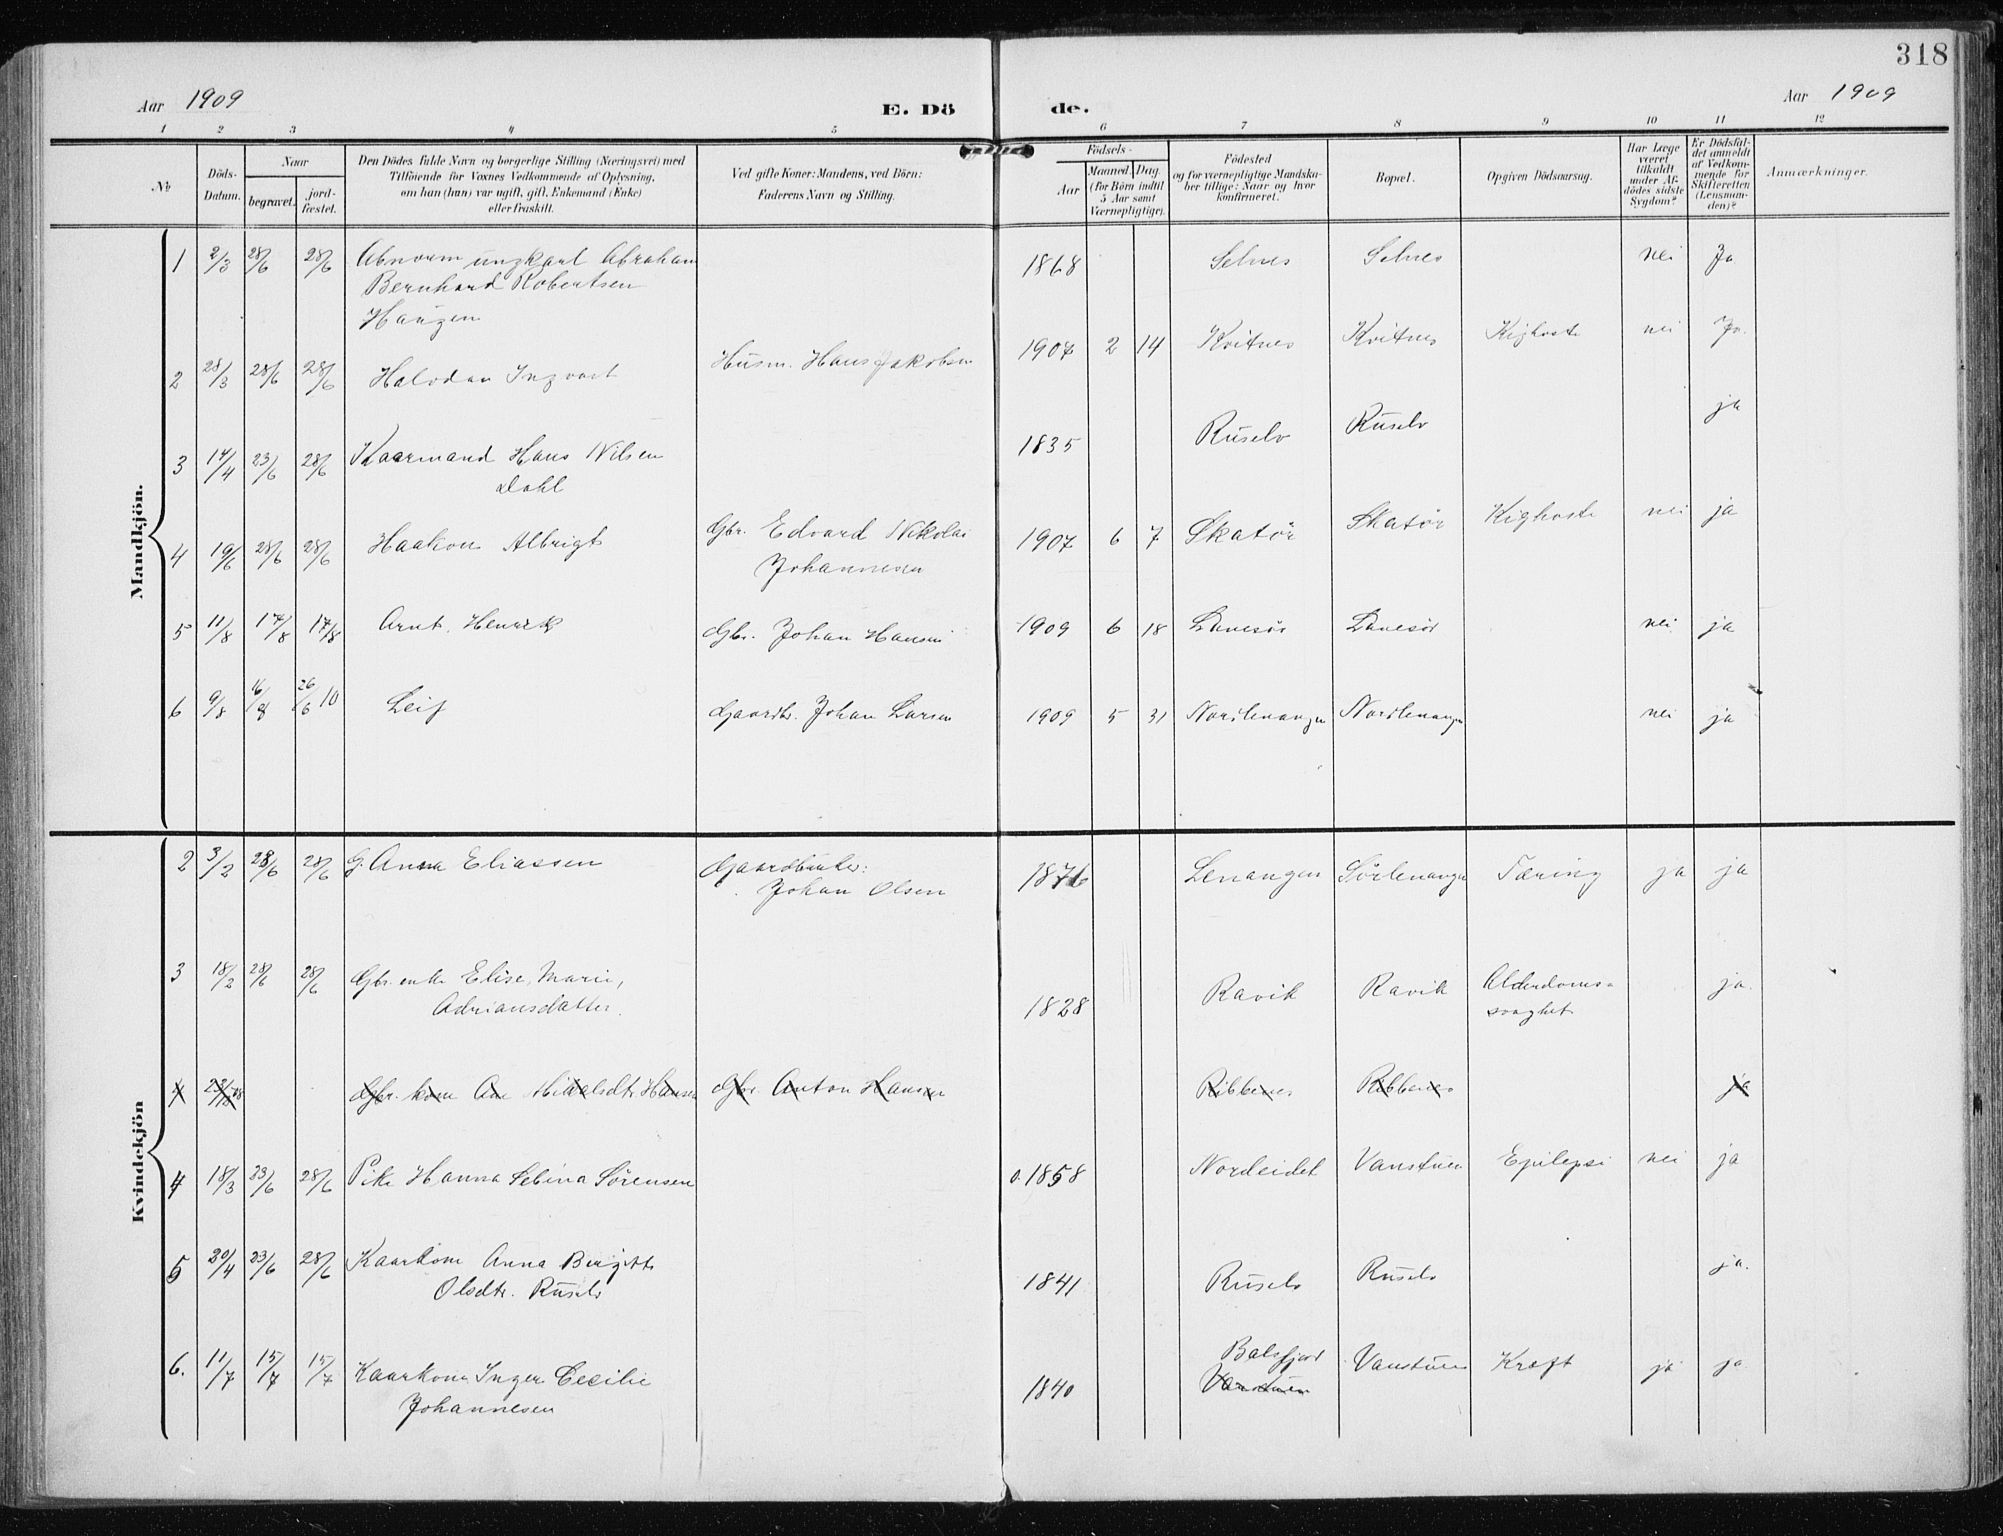 318
Aar 1909 E. Dö de. Aar 1909
1 2 3 4 5 6 7 8 9 10 11 12
No
Döds-Datum.
Naar
begravet.
jord-fæstet.
Den Dödes fulde Navn og borgerlige Stilling (Næringsvei) med
Tilföiende for Voxnes Vedkommende af Oplysning,
om han (hun) var ugift, gift, Enkemand (Enke)
eller fraskilt.
Ved gifte Koner: Mandens, ved Börn:
Faderens Navn og Stilling.
Födsels-
Aar
Maaned. Dag.
(for Börn indtil
5 Aar samt
Værnepligtige).
Födested
og for værnepligtige Mandska-
ber tillige: Naar og hvor
konfirmeret.
Bopæl.
Opgiven Dödsaarsag.
Har Læge
været
tilkaldt
under Af-
dödes sidste
Sygdom?
Er Dödsfal-
det anmeldt
af Vedkom-
mende for
Skifteretten
(Lensman-
den)?
Anmærkninger.
Mandkjön.
1 2/3 28/6 28/6 Abnorm ungkarl Abraham 1868 Selnes Selnes nei Ja
Bernhard Robertsen
Haugen
2 28/3 28/6 28/6 Halvdan Ingvart Husm. Hans Jakobsen 1907 2 14 Kvitnes Kvitnes Kighoste nei Ja.
3 14/4 23/6 28/6 Kaarmand Hans Nilsen 1835 Ruselv Ruselv ja
Dahl
4 19/6 28/6 28/6 Haakon Albrigt Gbr. Edvard Nikolai 1907 6 7 Skatør Skatør Kighoste nei ja
Johannesen
5 11/8 17/8 17/8 Arnt Henrik Gbr. Johan Hansen 1909 6 18 nei ja
6 9/8 16/8 26/6 10 Leif Gaardbr. Johan Larsen 1909 5 31 Nordlenangen Nordlenangen nei ja
Kvindekjön
2 3/2 28/6 28/6 G. Anna Eliassen Gaardbruker: 1876 Lenangen Sørlenangen Tæring ja ja
Johan Olsen
3 18/2 28/6 28/6 Gbr. enke Elise Marie, 1828 Ravik Ravik Alderdoms- ja.
Adriansdatter. svaghet
Gbr. kone Ane Hansen Gbr. Anton Hansen Ribbenes Ribbenes ja
4 18/3 23/6 28/6 Pike Hanna Sebina Sørensen o. 1858 Nordeidet Vanstuen Epilepsi nei ja
5 20/4 23/6 28/6 Kaarkone Anna Birgitte 1841 Ruselv Ruselv ja.
Olsdtr. Ruselv
6. 11/7 15/7 15/7 Kaarkone Inger Cecilie 1840 Balsfjord Vanstuen Kræft ja ja
Johannesen Vanstuen